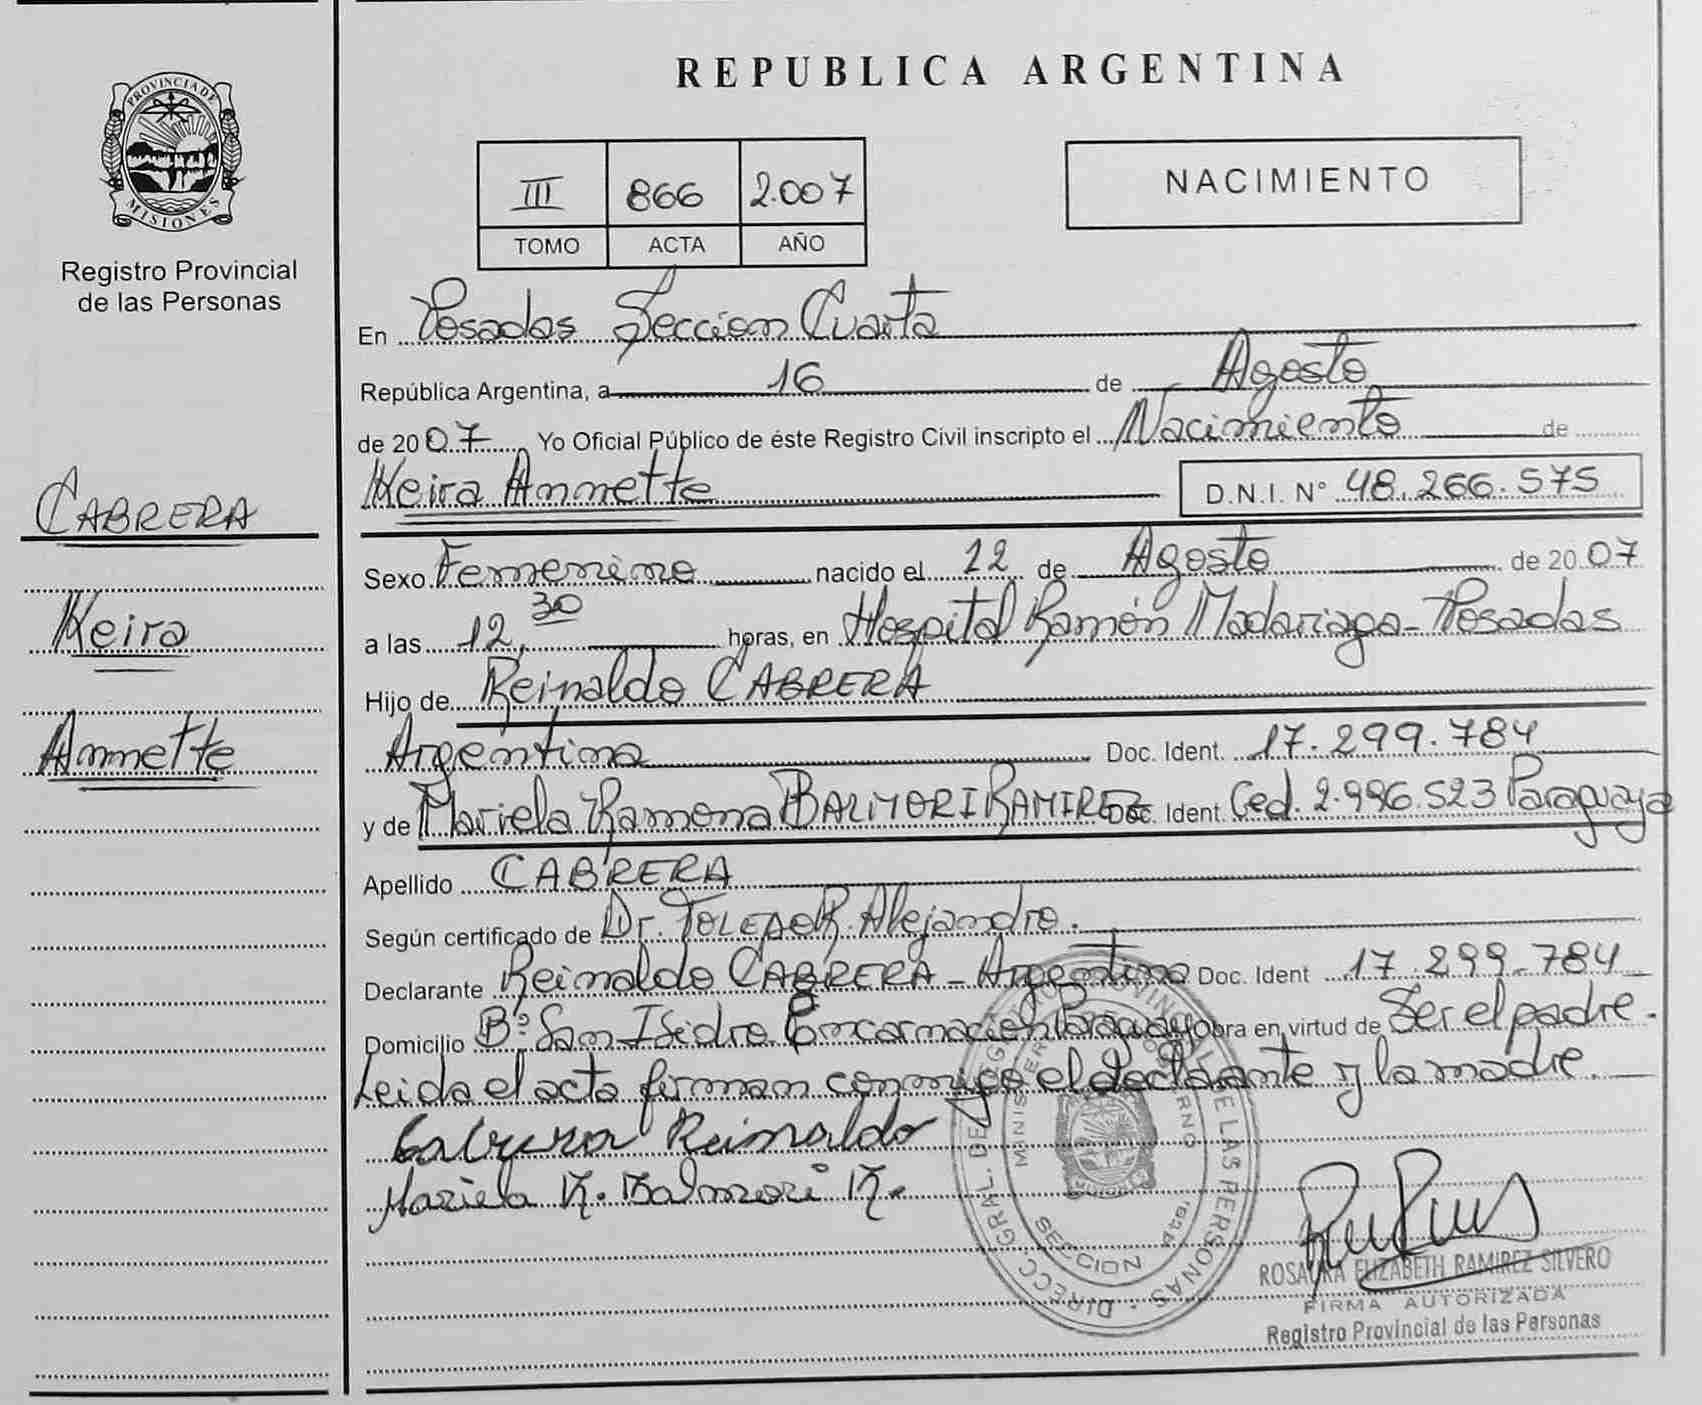 PROVINCIA DE
MISIONES
Registro Provincial
de las Personas
CABRERA
Keira
Annette
REPUBLICA ARGENTINA
III 866 2.007
TOMO ACTA AÑO
NACIMIENTO
En Posadas Seccion Cuarta
República Argentina, a 16 de Agosto
de 2007 Yo Oficial Público de éste Registro Civil inscripto el Nacimiento de
Keira Annette D.N.I. N° 48.266.575
Sexo Femenino nacido el 12 de Agosto de 2007
a las 12,30 horas, en Hospital Ramón Madariaga - Posadas
Hijo de Reinaldo CABRERA
Argentina Doc. Ident. 17.299.784
y de Mariela Ramona BALMORI RAMIREZ Doc. Ident. Ced. 2.996.523 Paraguaya
Apellido CABRERA
Según certificado de Dr. TOLEDO R. Alejandro.
Declarante Reinaldo CABRERA - Argentino Doc. Ident 17.299.784
Domicilio B° San Isidro Encarnación Paraguay obra en virtud de Ser el padre.
Leida el acta firman conmigo el declarante y la madre.
Cabrera Reinaldo
Mariela R. Balmori R.
DIRECC. GRAL. DEL REGISTRO PROVINCIAL DE LAS PERSONAS
SECCION 4ta.
ROSAURA ELIZABETH RAMIREZ SILVERO
FIRMA AUTORIZADA
Registro Provincial de las Personas